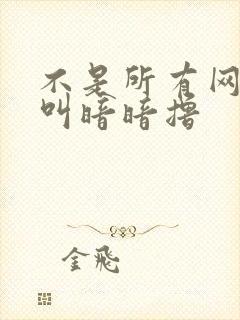 不是所有网
叫暗暗撸
金飛